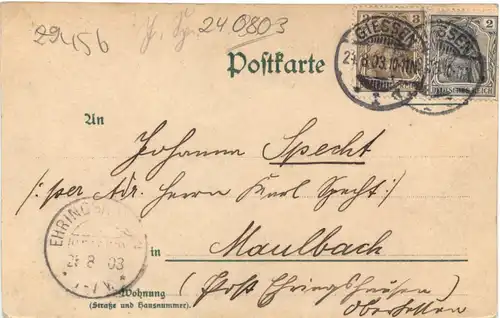 29456
240803
Postkarte
GIESSEN
24.8.03.10-11N.
3
DEUTSCHES REICH
GIESSEN
2
DEUTSCHES REICH
An
Johanna Specht
/: per Adr. Herrn Karl Specht :/
in Maulbach
EHRINGSHAUSEN
24 8 03
(Post Ehringshausen
Oberhessen)
Wohnung
(Straße und Hausnummer).